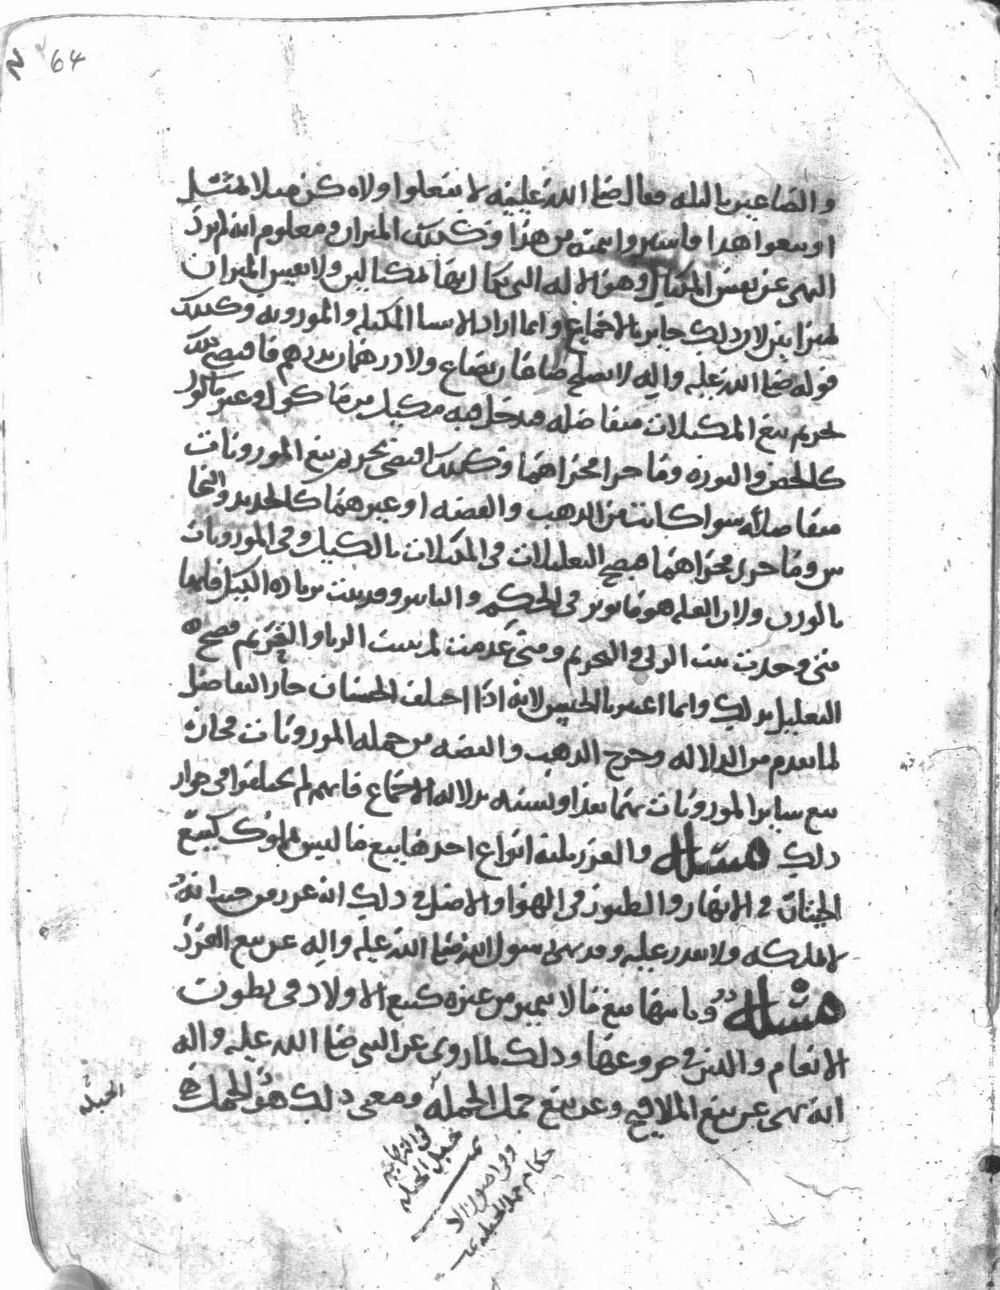 64
والصاعين بالثلاثه فقال صلى الله عليه لا تفعلوا ولاكن مثلا بمثل
او بيعوا هذا واشتروا بثمنه من هذا وكذلك الميزان ومعلوم انه لم يرد
النهي عن بعض المكيال وهو الاله التي يكال بها لمكيالين ولا بعين الميزان
لميزانين لان ذلك جايز بالاجماع وانما اراد الاشيا المكيله والموزونه وكذلك
قوله صلى الله عليه واله لا يصلح صاعان بصاع ولا درهمان بدرهم فاقتضى ذلك
تحريم بيع المكيلات متفاضله فدخل فيه مكيل من ماكول وغير ماكول
كالجص والنوره وما جرا مجراهما وكذلك اقتضى تحريم بيع الموزونات
متفاضله سوا كانت من الذهب والفضه او غيرهما كالحديد والنحا
س وما جرى مجراهما فصح التعليلات في المكيلات بالكيل وفي الموزونات
بالوزن ولان العله هو ما يوثر في الحكم والتاثير وقد ثبت زياده الكيل فانها
متى وجدت ثبت الربى والتحريم ومتى عدمت لم يثبت الربا والتحريم فصح
التعليل بذلك وانما اعتبرنا الجنس لانه اذا اختلف الجنسان جاز التفاضل
لما تقدم من الدلاله وخرج الذهب والفضه من جمله الموزونات فجاز
بيع ساير الموزونات بهما نقدا ونسيئه بدلاله الاجماع فانهم لم يختلفوا في جواز
ذلك مسئله والغرر ثلثه انواع احدها بيع ما ليس بمملوك كبيع
الحيتان في الانهار والطيور في الهوا والاصل في ذلك انه غرر من حيث انه
لا يملكه ولا يقدر عليه وقد نهى رسول الله صلى الله عليه واله عن بيع الغرر
مسئله وثانيها بيع ما لا يتميز من غيره كبيع الاولاد في بطون
الانعام واللبن في ضروعها وذلك لما روي عن النبي صلى الله عليه واله
انه نهى عن بيع الملاقيح وعن بيع حبل الحبله ومعنى ذلك هو الحمل في
الحبله